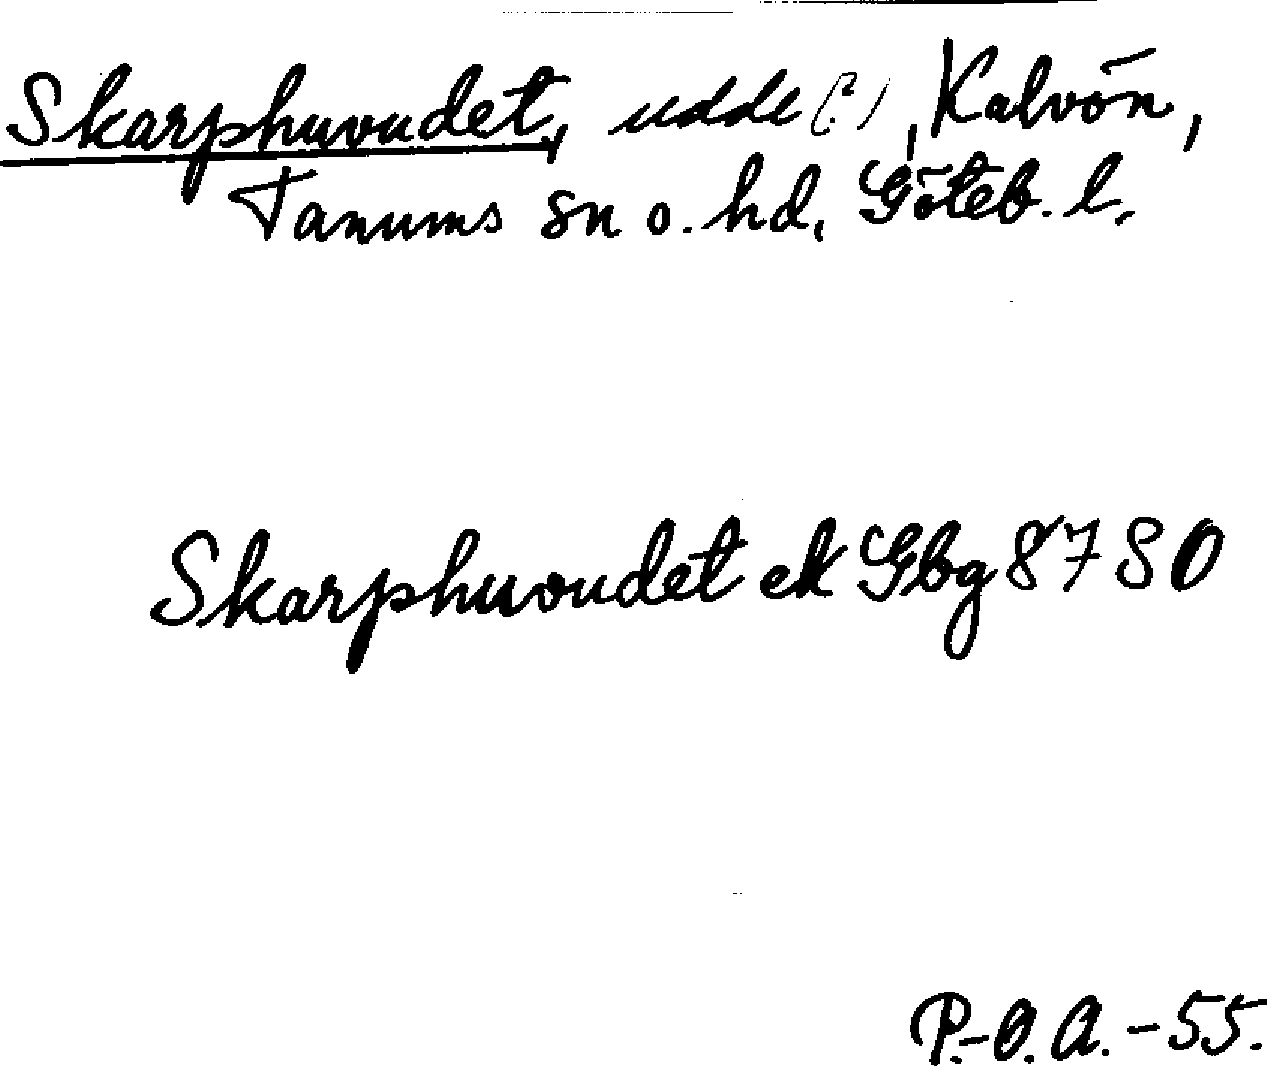 Skarphuvudet, udde (?), Kalvön,
Tanums sn o. hd, Göteb. l.
Skarphuvudet ek Gbg 8780
P.-O. A. - 55.